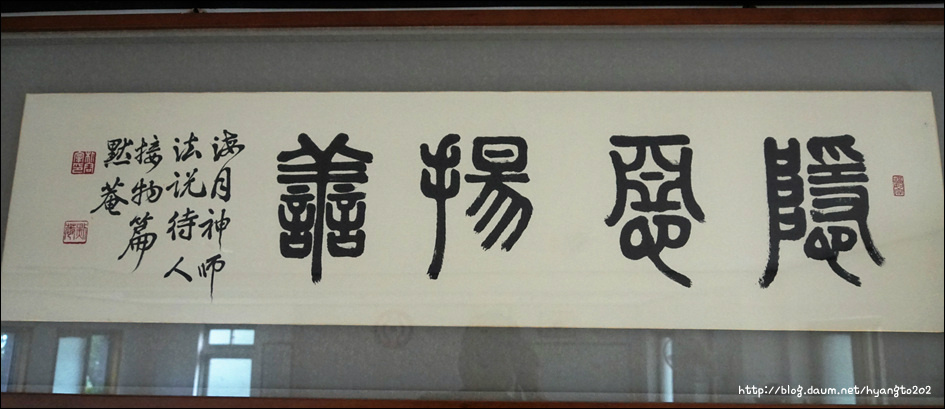 隱惡揚善
海月神师
法说待人
接物篇
黙菴
http://blog.daum.net/hyangto202